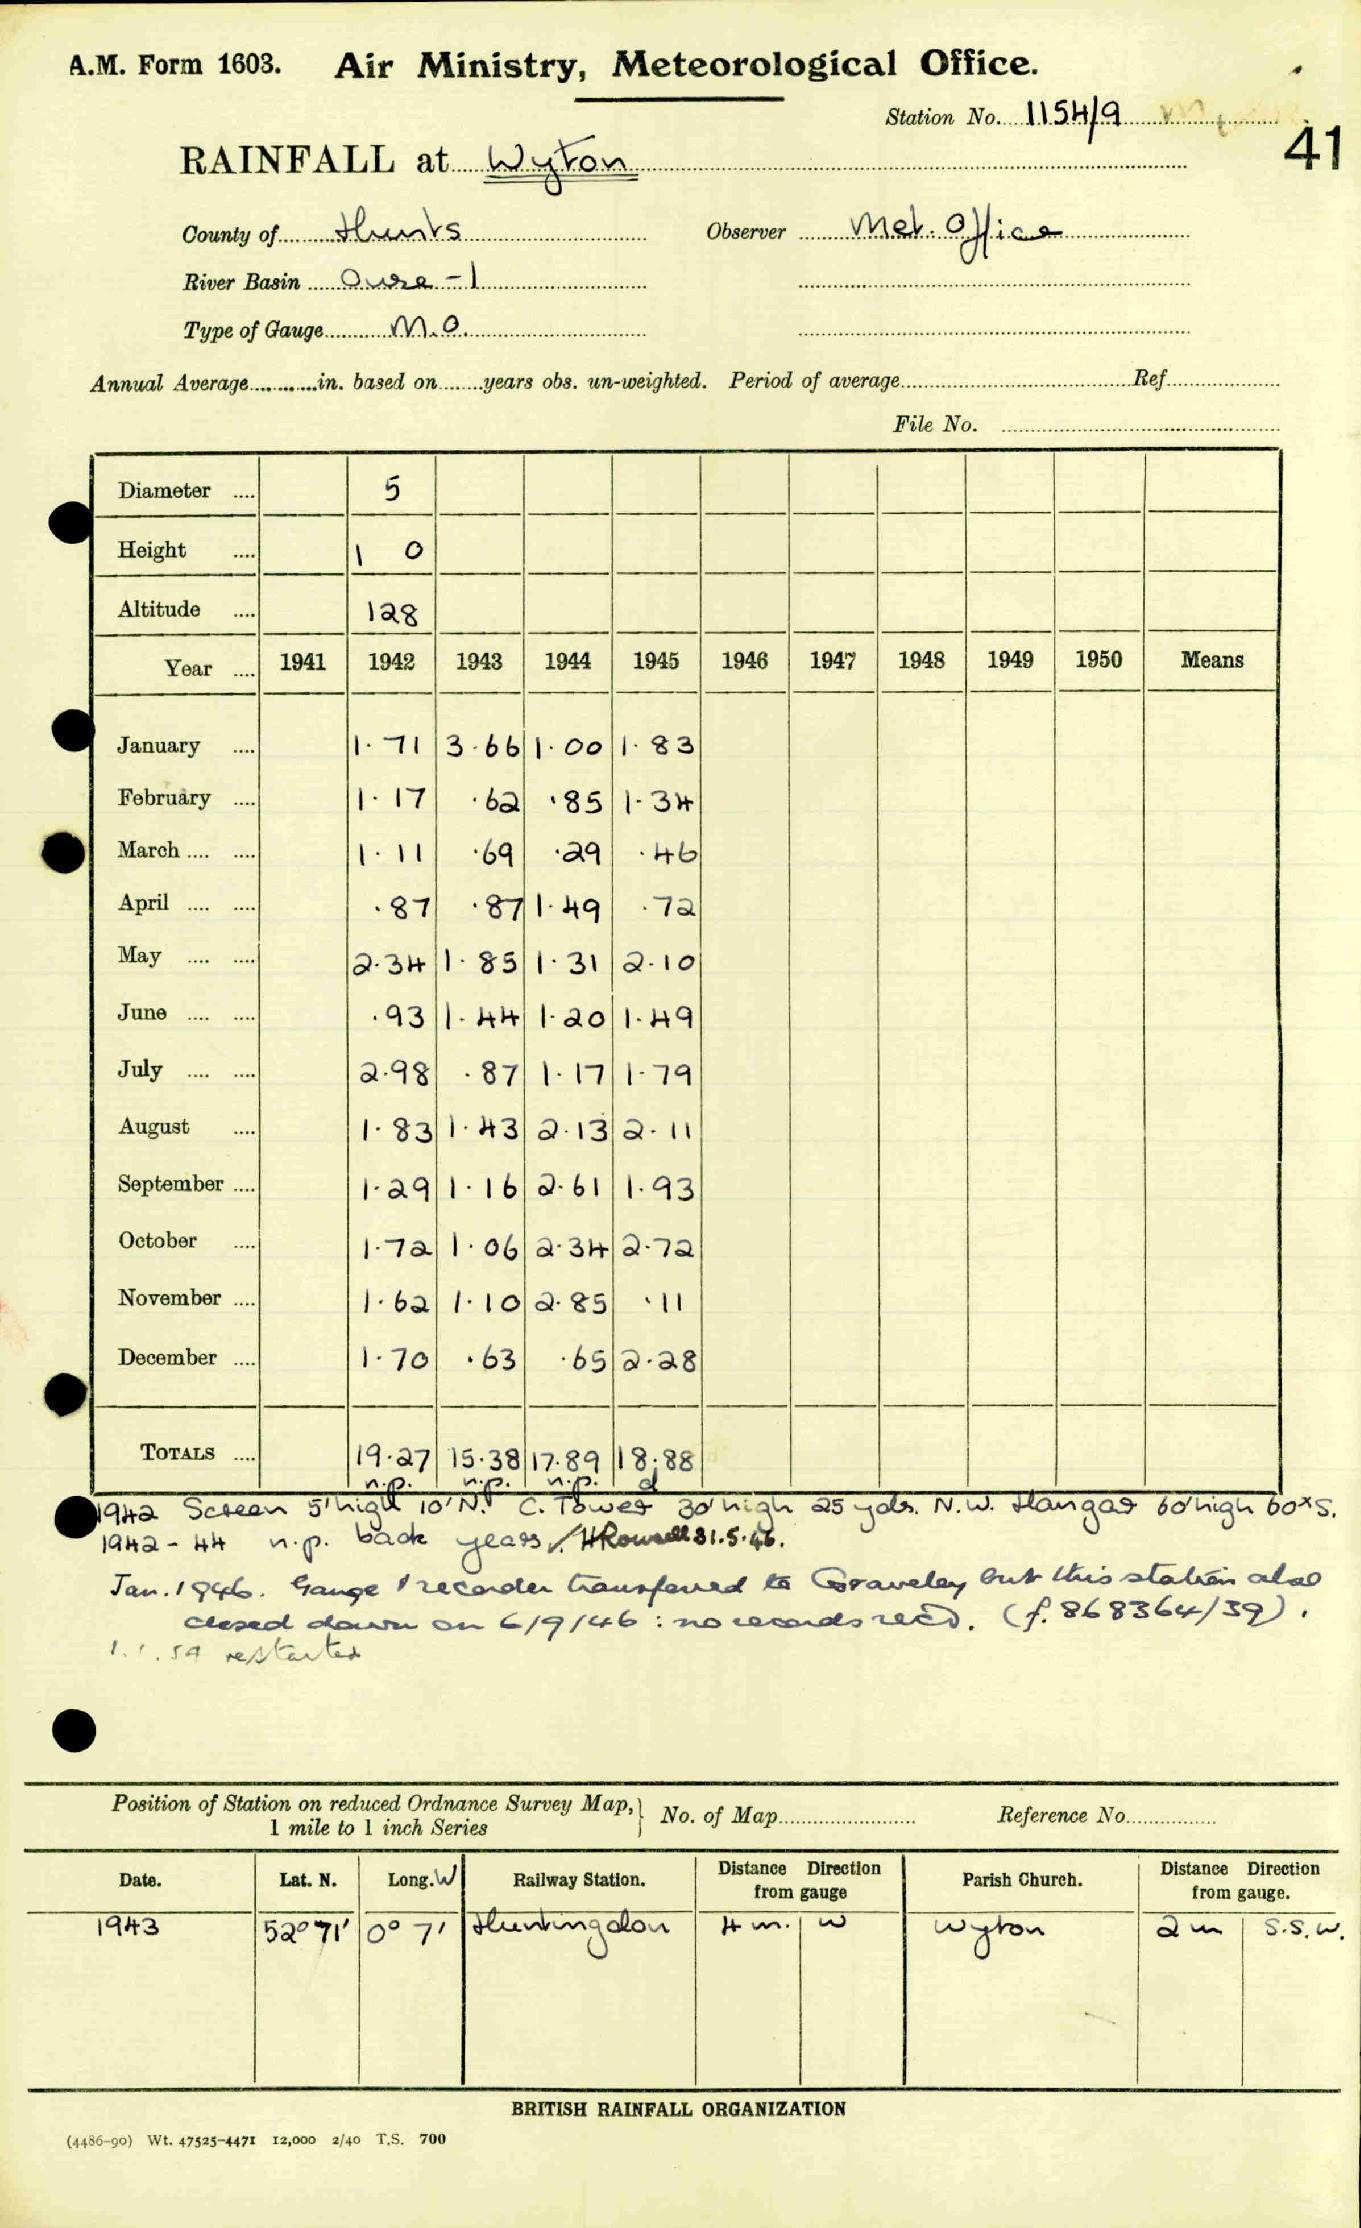 A.M. Form 1603. Air Ministry, Meteorological Office.
Station No. 1154/9
41
RAINFALL at Wyton
County of Hunts Observer Met. Office
River Basin Ouse - 1
Type of Gauge M.O.
Annual Average in. based on years obs. un-weighted. Period of average Ref
File No.
Diameter 5
Height 1 0
Altitude 128
Year 1941 1942 1943 1944 1945 1946 1947 1948 1949 1950 Means
January 1.71 3.66 1.00 1.83
February 1.17 .62 .85 1.34
March 1.11 .69 .29 .46
April .87 .87 1.49 .72
May 2.34 1.85 1.31 2.10
June .93 1.44 1.20 1.49
July 2.98 .87 1.17 1.79
August 1.83 1.43 2.13 2.11
September 1.29 1.16 2.61 1.93
October 1.72 1.06 2.34 2.72
November 1.62 1.10 2.85 .11
December 1.70 .63 .65 2.28
TOTALS 19.27 15.38 17.89 18.88
n.p. n.p. n.p. d
1942 Screen 5' high 10' N. C. Tower 30' high 25 yds. N.W. Hangar 60' high 60x S.
1942 - 44 n.p. back years HRowsell 31.5.46.
Jan. 1946. Gauge & recorder transferred to Graveley but this station also
closed down on 6/9/46 : no records recd. (f. 868364/39).
1.1.54 restarted
Position of Station on reduced Ordnance Survey Map, } No. of Map Reference No.
1 mile to 1 inch Series
Date. Lat. N. Long. W Railway Station. Distance Direction from gauge Parish Church. Distance Direction from gauge.
1943 52° 71' 0° 7' Huntingdon 4 m. W Wyton 2 m S.S.W.
BRITISH RAINFALL ORGANIZATION
(4486-90) Wt. 47525-4471 12,000 2/40 T.S. 700